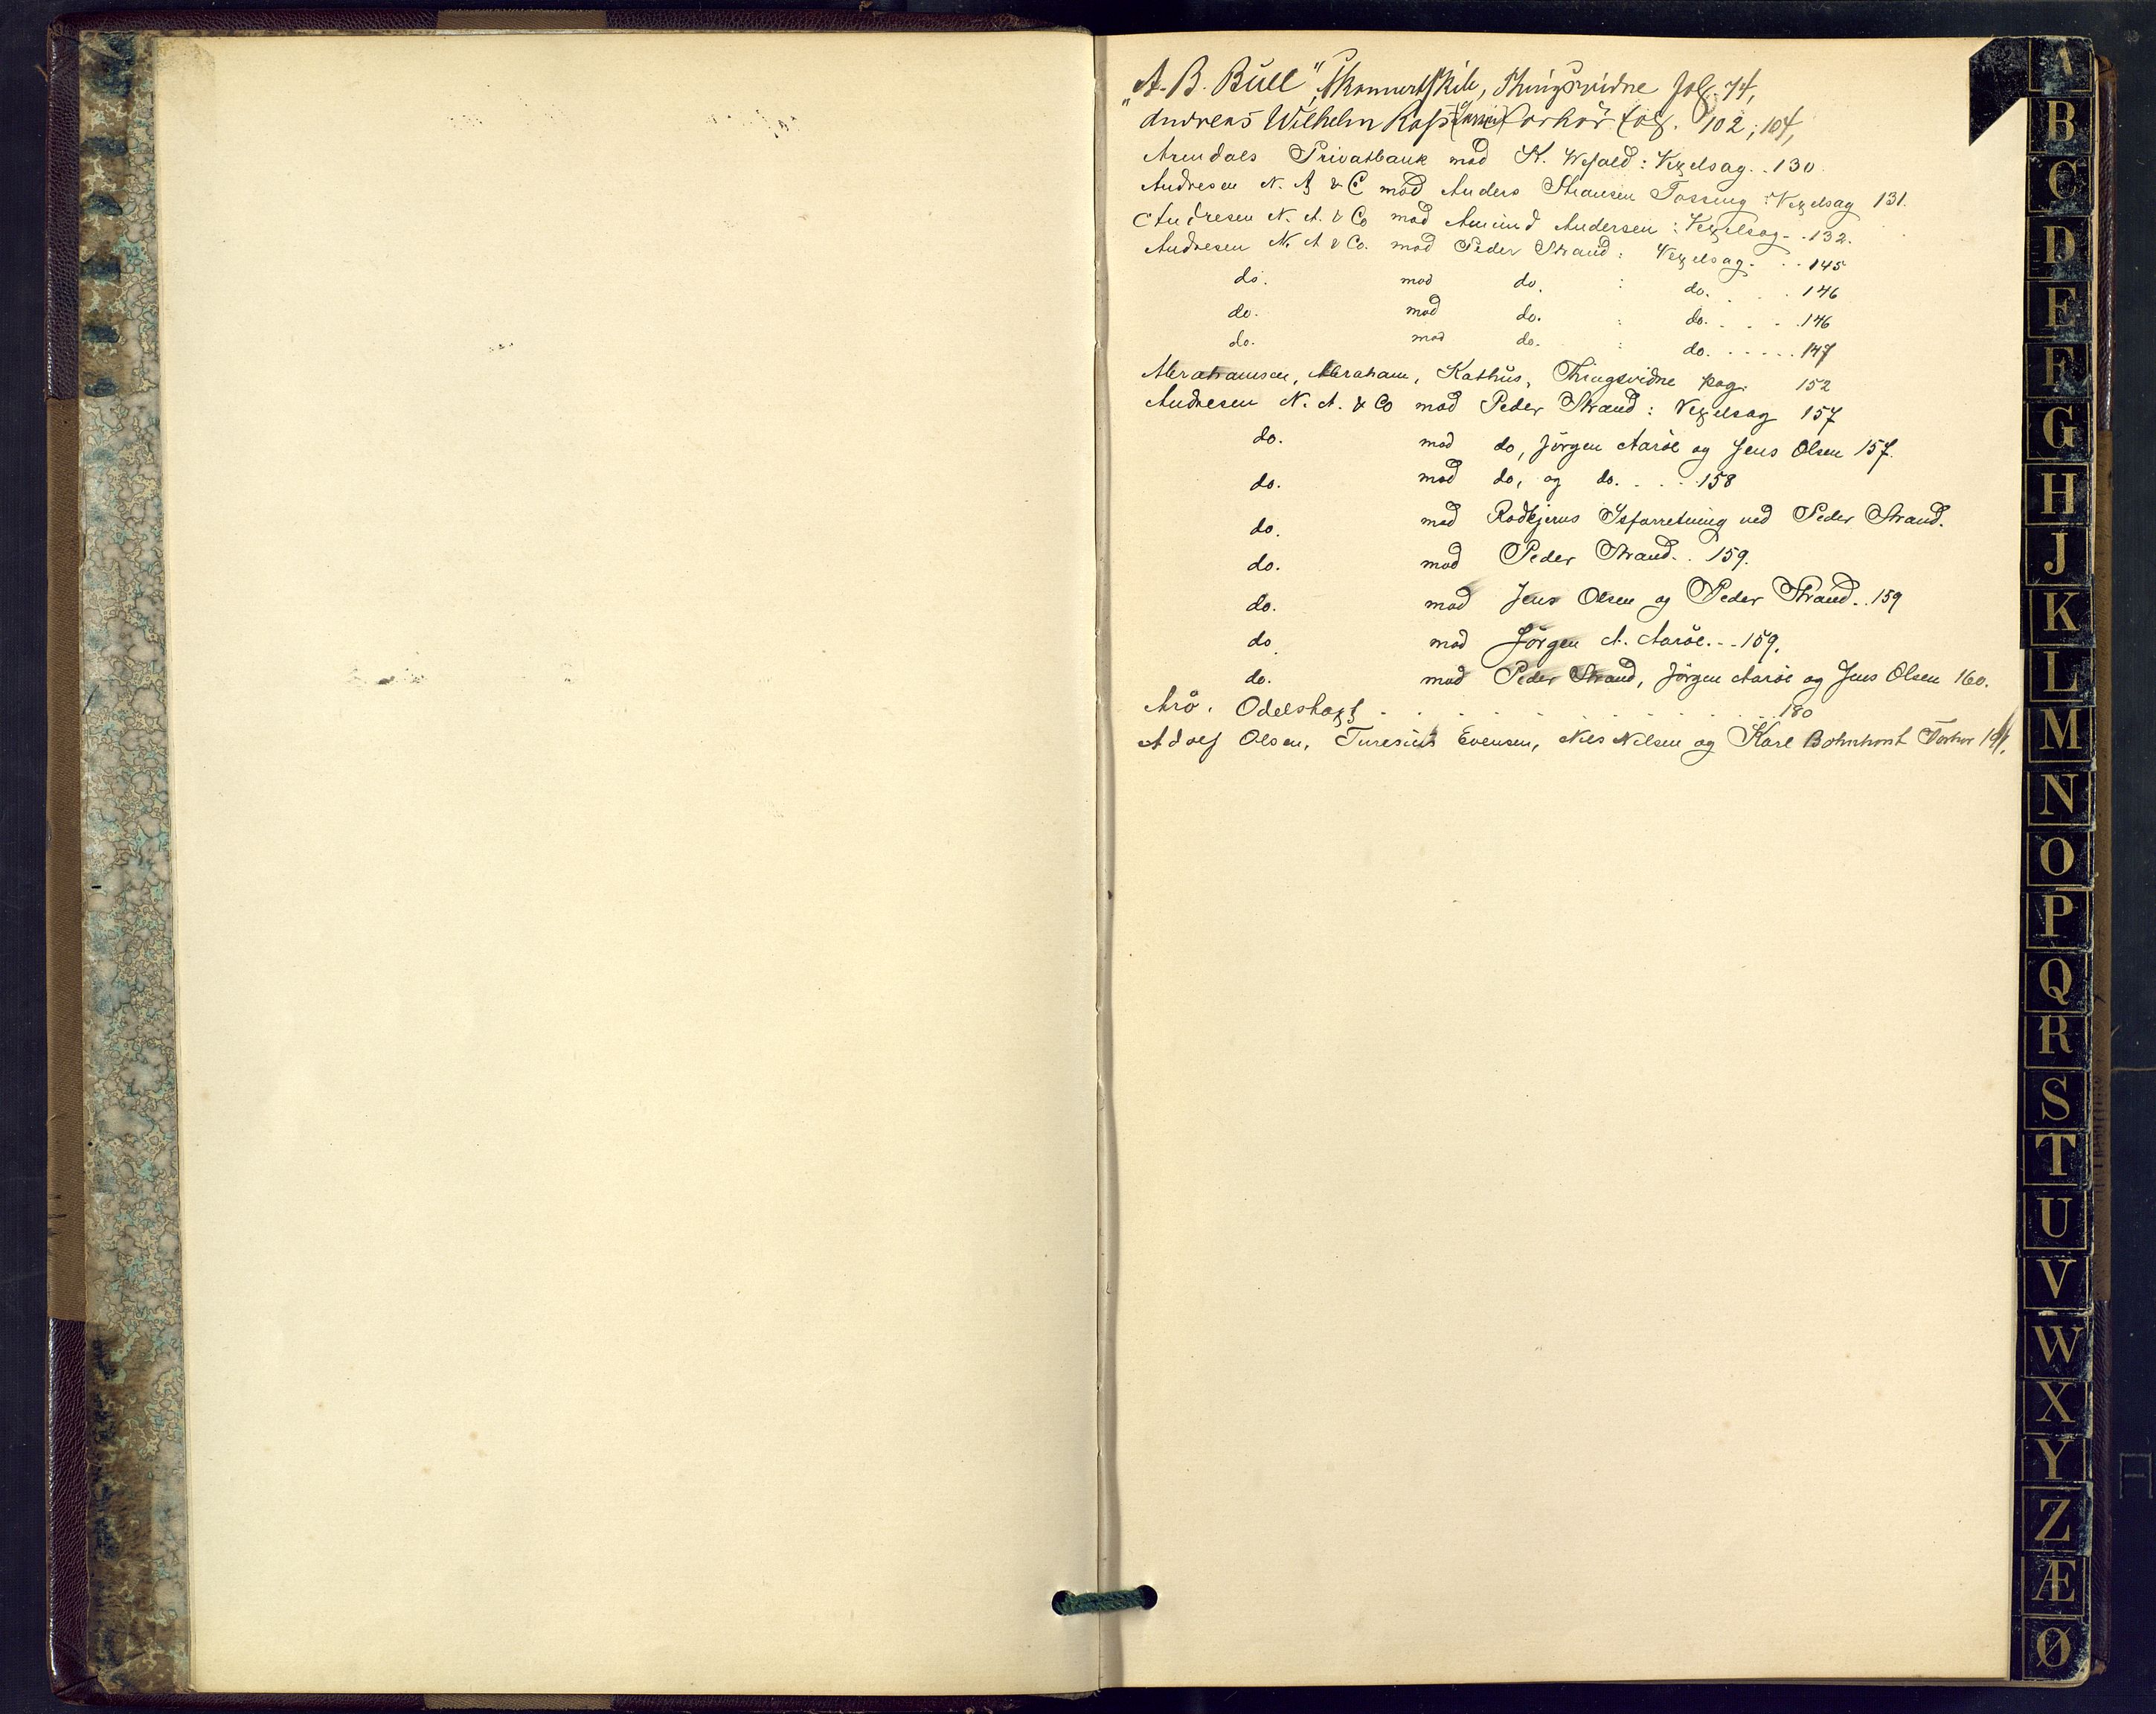 "A. B. Bull", Skonnertskib, Thingsvidne fol. 74,
Andreas Wilhelm Forhør fol. 102, 104,
Arendals Privatbank mod K. Vefald: Vexelsag. . 130.
Andresen N. A & C mod Anders Thomsen Tossing: Vexelsag 131.
Andresen N. A. & Co mod Amund Andersen: Vexelsag. . 132.
Andresen N. A & Co. mod Peder Strand: Vexelsag. . . 145
do. mod do. : do. . . . 146
do. mod do. : do. . . . . 146
do. mod do. : do. . . . . . 147
Abrahamsen, Abraham, Kathus, Thingsvidne pag. 152
Andresen N. A. & Co mod Peder Strand: Vexelsag 157
do. mod do, Jørgen Aarøe og Jens Olsen 157.
do. mod do, og do. . . . 158
do. mod Rødkjerns Isforretning ved Peder Strand.
do. mod Peder Strand. . 159.
do. mod Jens Olsen og Peder Strand. . 159
do. mod Jørgen A. Aarøe. . . 159.
do. mod Peder Strand, Jørgen Aarøe og Jens Olsen 160.
Arø. Odelstaxt . . . . . . . . . 180
Adolf Olsen, Turesius Evensen, Nils Nilsen og Karl Bohnhorst Forhør
A
B
C
D
E
F
G
H
J
K
L
M
N
O
P
Q
R
S
T
U
V
W
X
Y
Z
Æ
Ø